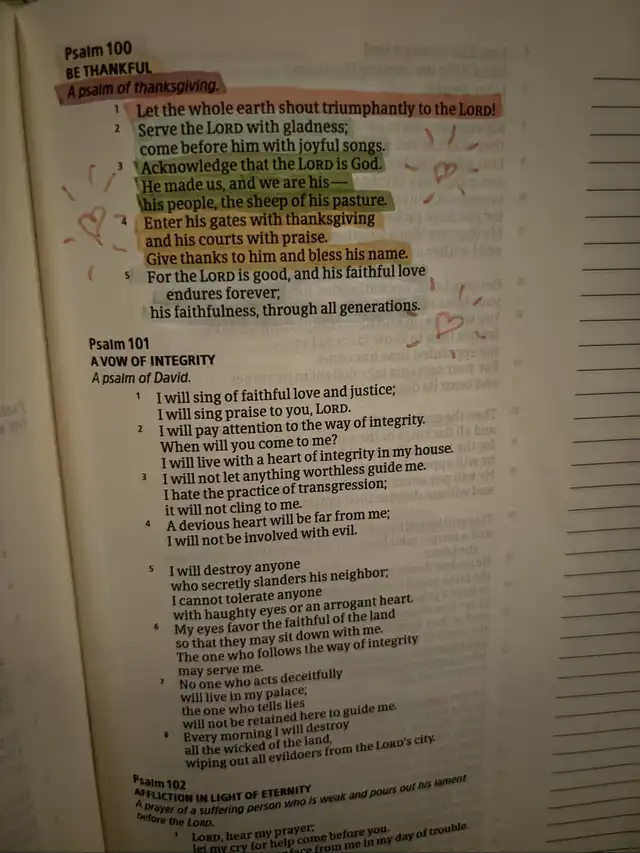 Psalm 100
BE THANKFUL
A psalm of thanksgiving.
1 Let the whole earth shout triumphantly to the LORD!
2 Serve the LORD with gladness;
come before him with joyful songs.
3 Acknowledge that the LORD is God.
He made us, and we are his—
his people, the sheep of his pasture.
4 Enter his gates with thanksgiving
and his courts with praise.
Give thanks to him and bless his name.
5 For the LORD is good, and his faithful love
endures forever;
his faithfulness, through all generations.
Psalm 101
A VOW OF INTEGRITY
A psalm of David.
1 I will sing of faithful love and justice;
I will sing praise to you, LORD.
2 I will pay attention to the way of integrity.
When will you come to me?
I will live with a heart of integrity in my house.
3 I will not let anything worthless guide me.
I hate the practice of transgression;
it will not cling to me.
4 A devious heart will be far from me;
I will not be involved with evil.
5 I will destroy anyone
who secretly slanders his neighbor;
I cannot tolerate anyone
with haughty eyes or an arrogant heart.
6 My eyes favor the faithful of the land
so that they may sit down with me.
The one who follows the way of integrity
may serve me.
7 No one who acts deceitfully
will live in my palace;
the one who tells lies
will not be retained here to guide me.
8 Every morning I will destroy
all the wicked of the land,
wiping out all evildoers from the LORD's city.
Psalm 102
AFFLICTION IN LIGHT OF ETERNITY
A prayer of a suffering person who is weak and pours out his lament
before the LORD.
1 LORD, hear my prayer;
let my cry for help come before you.
from me in my day of trouble.